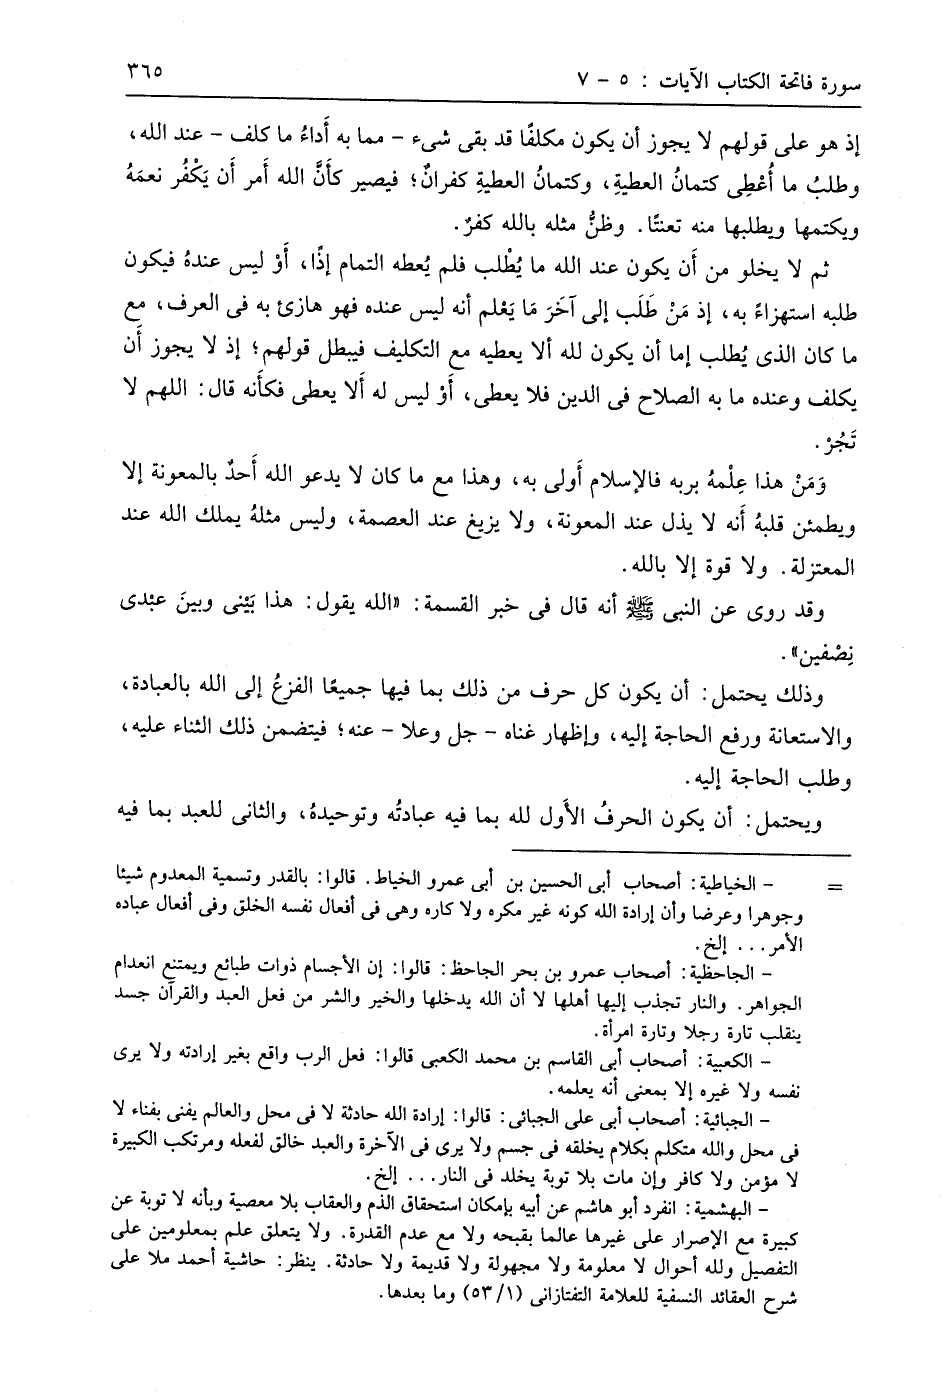 سورة فاتحة الكتاب الآيات : ٥ - ٧
٣٦٥
إذ هو على قولهم لا يجوز أن يكون مكلفًا قد بقى شىء - مما به أَداءُ ما كلف - عند الله،
وطلبُ ما أُعْطِى كتمانُ العطيةِ، وكتمانُ العطيةِ كفرانٌ؛ فيصير كأَنَّ الله أمر أَن يَكْفُر نعمَهُ
ويكتمها ويطلبها منه تعنتًا. وظنُّ مثله بالله كفرٌ.
ثم لا يخلو من أَن يكون عند الله ما يُطْلب فلم يُعطه التمام إذًا، أَوْ ليس عندهُ فيكون
طلبه استهزاءً به، إذ مَنْ طَلَب إلى آخَرَ مَا يَعْلم أنه ليس عنده فهو هازئ به فى العرف، مع
ما كان الذى يُطلب إما أن يكون لله ألا يعطيه مع التكليف فيبطل قولهم؛ إذ لا يجوز أَن
يكلف وعنده ما به الصلاح فى الدين فلا يعطى، أَوْ ليس له أَلا يعطى فكأَنه قال: اللهم لا
تَجُرْ.
وَمَنْ هذا عِلْمهُ بربه فالإسلام أَولى به، وهذا مع ما كان لا يدعو الله أَحدٌ بالمعونة إلا
ويطمئن قلبهُ أَنه لا يذل عند المعونة، ولا يزيغ عند العصمة، وليس مثلهُ يملك الله عند
المعتزلة. ولا قوة إلا بالله.
وقد روى عن النبى ﷺ أنه قال فى خبر القسمة: «الله يقول: هذا بَيْنى وبينَ عبْدى
نِصْفين».
وذلك يحتمل: أن يكون كل حرف من ذلك بما فيها جميعًا الفزعُ إلى الله بالعبادة،
والاستعانة ورفع الحاجة إليه، وإظهار غناه - جل وعلا - عنه؛ فيتضمن ذلك الثناء عليه،
وطلب الحاجة إليه.
ويحتمل: أن يكون الحرفُ الأَول لله بما فيه عبادتُه وتوحيدهُ، والثانى للعبد بما فيه
= - الخياطية: أصحاب أبى الحسين بن أبى عمرو الخياط. قالوا: بالقدر وتسمية المعدوم شيئا
وجوهرا وعرضا وأن إرادة الله كونه غير مكره ولا كاره وهى فى أفعال نفسه الخلق وفى أفعال عباده
الأمر... إلخ.
- الجاحظية: أصحاب عمرو بن بحر الجاحظ: قالوا: إن الأجسام ذوات طبائع ويمتنع انعدام
الجواهر. والنار تجذب إليها أهلها لا أن الله يدخلها والخير والشر من فعل العبد والقرآن جسد
ينقلب تارة رجلا وتارة امرأة.
- الكعبية: أصحاب أبى القاسم بن محمد الكعبى قالوا: فعل الرب واقع بغير إرادته ولا يرى
نفسه ولا غيره إلا بمعنى أنه يعلمه.
- الجبائية: أصحاب أبى على الجبائى: قالوا: إرادة الله حادثة لا فى محل والعالم يفنى بفناء لا
فى محل والله متكلم بكلام يخلقه فى جسم ولا يرى فى الآخرة والعبد خالق لفعله ومرتكب الكبيرة
لا مؤمن ولا كافر وإن مات بلا توبة يخلد فى النار... إلخ.
- البهشمية: انفرد أبو هاشم عن أبيه بإمكان استحقاق الذم والعقاب بلا معصية وبأنه لا توبة عن
كبيرة مع الإصرار على غيرها عالما بقبحه ولا مع عدم القدرة. ولا يتعلق علم بمعلومين على
التفصيل ولله أحوال لا معلومة ولا مجهولة ولا قديمة ولا حادثة. ينظر: حاشية أحمد ملا على
شرح العقائد النسفية للعلامة التفتازانى (١/ ٥٣) وما بعدها.